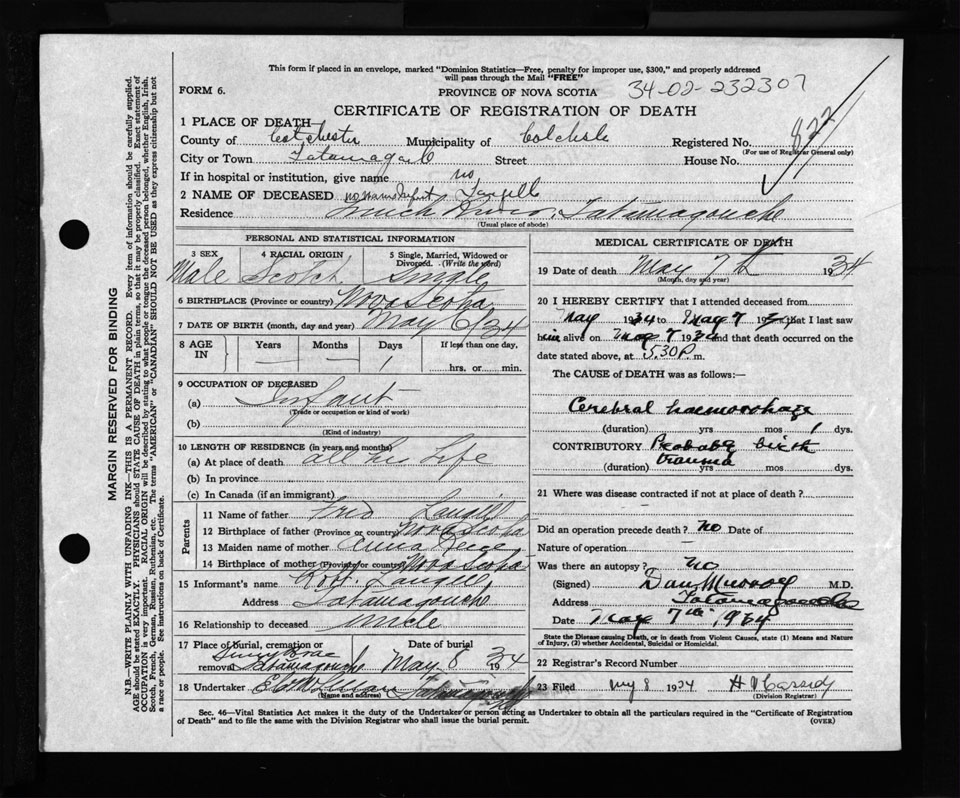 This form if placed in an envelope, marked "Dominion Statistics—Free, penalty for improper use, $300," and properly addressed
will pass through the Mail "FREE"
FORM 6.
PROVINCE OF NOVA SCOTIA
34-02-232307
CERTIFICATE OF REGISTRATION OF DEATH
822
1 PLACE OF DEATH
County of Colchester Municipality of Colchester Registered No.
(For use of Registrar General only)
City or Town Street House No.
If in hospital or institution, give name no
2 NAME OF DECEASED no name Infant Langill
Residence River, Tatamagouche
(Usual place of abode)
PERSONAL AND STATISTICAL INFORMATION
3 SEX 4 RACIAL ORIGIN 5 Single, Married, Widowed or Divorced. (Write the word)
Male Scotch Single
6 BIRTHPLACE (Province or country) Nova Scotia
7 DATE OF BIRTH (month, day and year) May 6/34
8 AGE IN Years Months Days If less than one day,
— — 1 hrs. or min.
9 OCCUPATION OF DECEASED
(a) Infant
(Trade or occupation or kind of work)
(b)
(Kind of industry)
10 LENGTH OF RESIDENCE (in years and months)
(a) At place of death all his Life
(b) In province
(c) In Canada (if an immigrant)
Parents
11 Name of father Fred Langill
12 Birthplace of father (Province or country) Nova Scotia
13 Maiden name of mother Anna
14 Birthplace of mother (Province or country) Nova Scotia
15 Informant's name Robt. Langill,
Address Tatamagouche
16 Relationship to deceased Uncle
17 Place of burial, cremation or removal Tatamagouche
Date of burial May 8 1934
18 Undertaker
(Name and address)
MEDICAL CERTIFICATE OF DEATH
19 Date of death May 7th 1934
(Month, day and year)
20 I HEREBY CERTIFY that I attended deceased from
May 1934 to May 7 193 that I last saw
him alive on May 7 1934 and that death occurred on the
date stated above, at 5.30 P. m.
The CAUSE of DEATH was as follows:—
Cerebral haemorrhage
(duration) yrs mos 1 dys.
CONTRIBUTORY Probably birth
trauma
(duration) yrs mos. dys.
21 Where was disease contracted if not at place of death?
Did an operation precede death? No Date of
Nature of operation —
Was there an autopsy? No
(Signed) Dan Murray M.D.
Address Tatamagouche
Date May 7th, 1934
State the Disease causing Death, or in death from Violent Causes, state (1) Means and Nature
of Injury, (2) whether Accidental, Suicidal or Homicidal.
22 Registrar's Record Number
23 Filed My 8 1934 Cassidy
(Division Registrar)
Sec. 46—Vital Statistics Act makes it the duty of the Undertaker or person acting as Undertaker to obtain all the particulars required in the "Certificate of Registration
of Death" and to file the same with the Division Registrar who shall issue the burial permit.
(OVER)
MARGIN RESERVED FOR BINDING
N.B.—WRITE PLAINLY WITH UNFADING INK—THIS IS A PERMANENT RECORD. Every item of information should be carefully supplied.
AGE should be stated EXACTLY. PHYSICIANS should STATE CAUSE OF DEATH in plain terms, so that it may be properly classified. Exact statement of
OCCUPATION is very important. RACIAL ORIGIN will be described by stating to what people or tongue the deceased person belonged, whether English, Irish,
Scotch, French, German, Russian, Ruthenian, etc. The terms "AMERICAN" or "CANADIAN" SHOULD NOT BE USED as they express citizenship but not
a race or people. See instructions on back of Certificate.